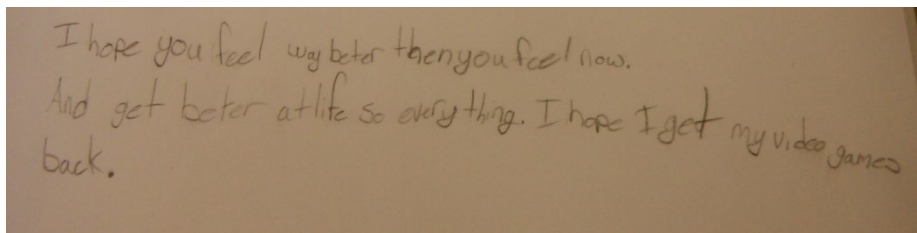 I hope you feel way beter then you feel now.
And get beter at life so every thing. I hope I get my video games
back.